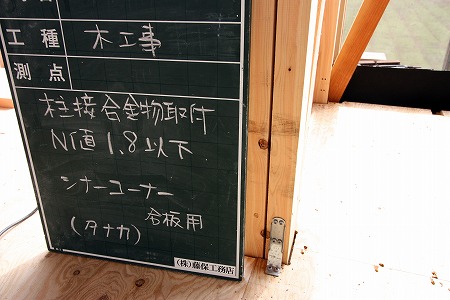 工種 木工事
測点
柱接合金物取付
N値 1.8以下
シナーコーナー
合板用
(タナカ)
(株)藤保工務店